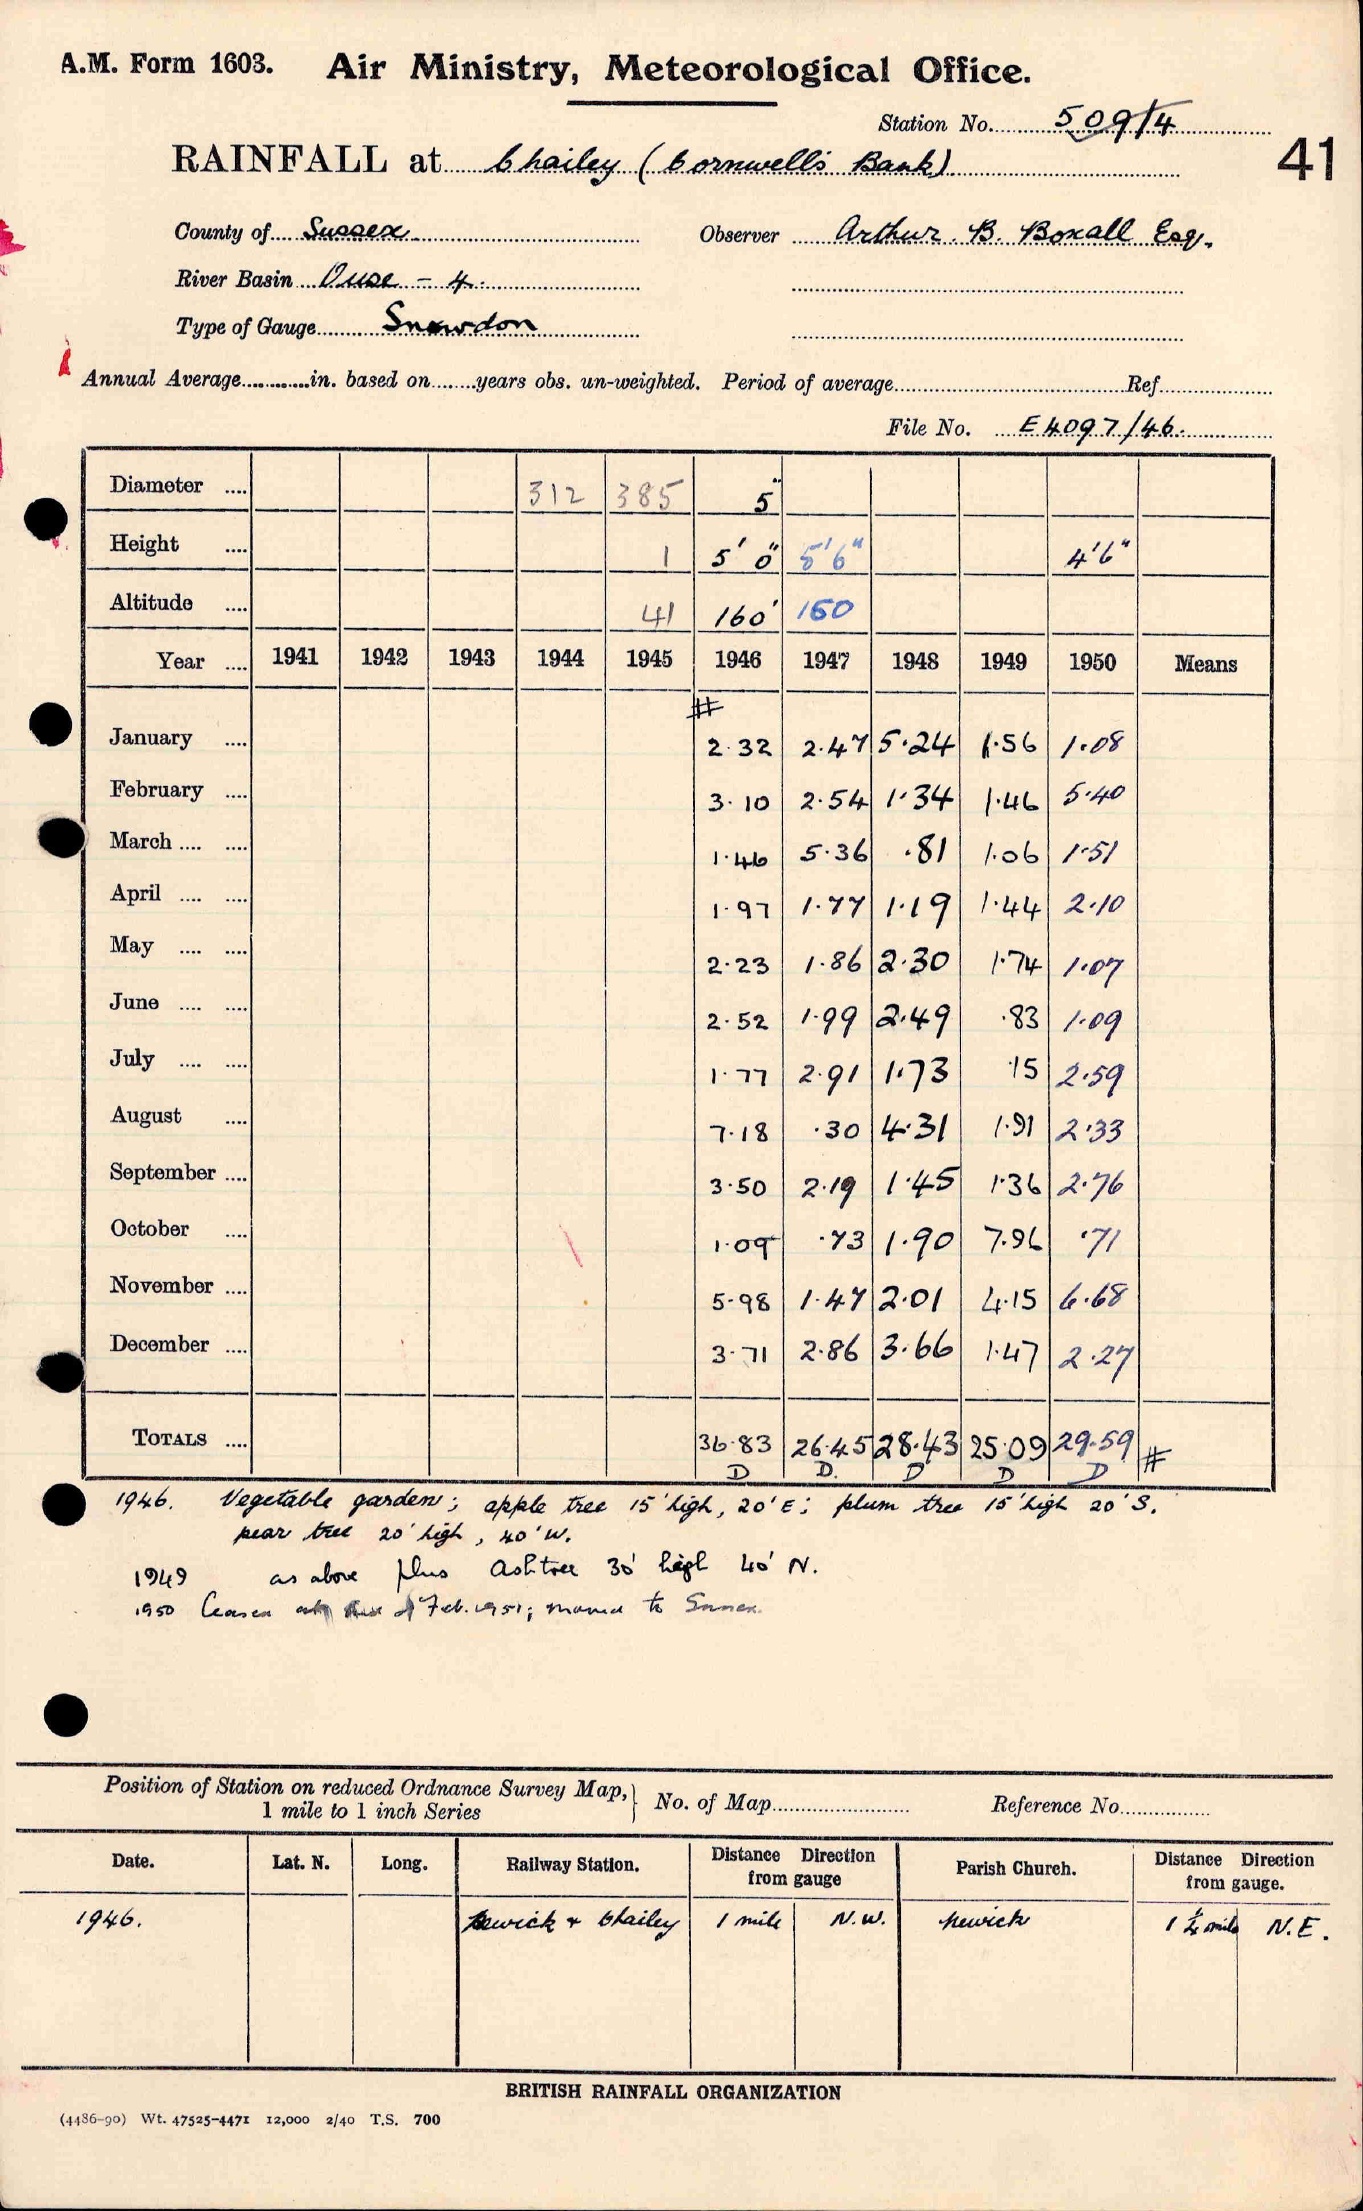 A.M. Form 1603. Air Ministry, Meteorological Office.
Station No. 509/4
RAINFALL at Chailey (Cornwell's Bank) 41
County of Sussex Observer Arthur. B. Boxall Esq.
River Basin Ouse - 4.
Type of Gauge Snowdon
Annual Average in. based on years obs. un-weighted. Period of average Ref
File No. E4097/46.
Diameter 312 385 5"
Height 1 5' 0" 5'6" 4'6"
Altitude 41 160' 160
Year 1941 1942 1943 1944 1945 1946 1947 1948 1949 1950 Means
#
January 2.32 2.47 5.24 1.56 1.08
February 3.10 2.54 1.34 1.46 5.40
March 1.46 5.36 .81 1.06 1.51
April 1.97 1.77 1.19 1.44 2.10
May 2.23 1.86 2.30 1.74 1.07
June 2.52 1.99 2.49 .83 1.09
July 1.77 2.91 1.73 .15 2.59
August 7.18 .30 4.31 1.91 2.33
September 3.50 2.19 1.45 1.36 2.76
October 1.09 .73 1.90 7.96 .71
November 5.98 1.47 2.01 4.15 6.68
December 3.71 2.86 3.66 1.47 2.27
TOTALS 36.83 26.45 28.43 25.09 29.59 #
D D. D D D
1946. Vegetable garden; apple tree 15' high, 20' E; plum tree 15' high 20' S.
pear tree 20' high, 40' W.
1949 as above plus Ash tree 30' high 40' N.
1950 Ceased Feb. 1951; moved to
Position of Station on reduced Ordnance Survey Map, No. of Map Reference No.
1 mile to 1 inch Series
Date. Lat. N. Long. Railway Station. Distance Direction from gauge Parish Church. Distance Direction from gauge.
1946. Newick + Chailey 1 mile N.W. Newick 1 1/4 mile N.E.
BRITISH RAINFALL ORGANIZATION
(4486-90) Wt. 47525-4471 12,000 2/40 T.S. 700